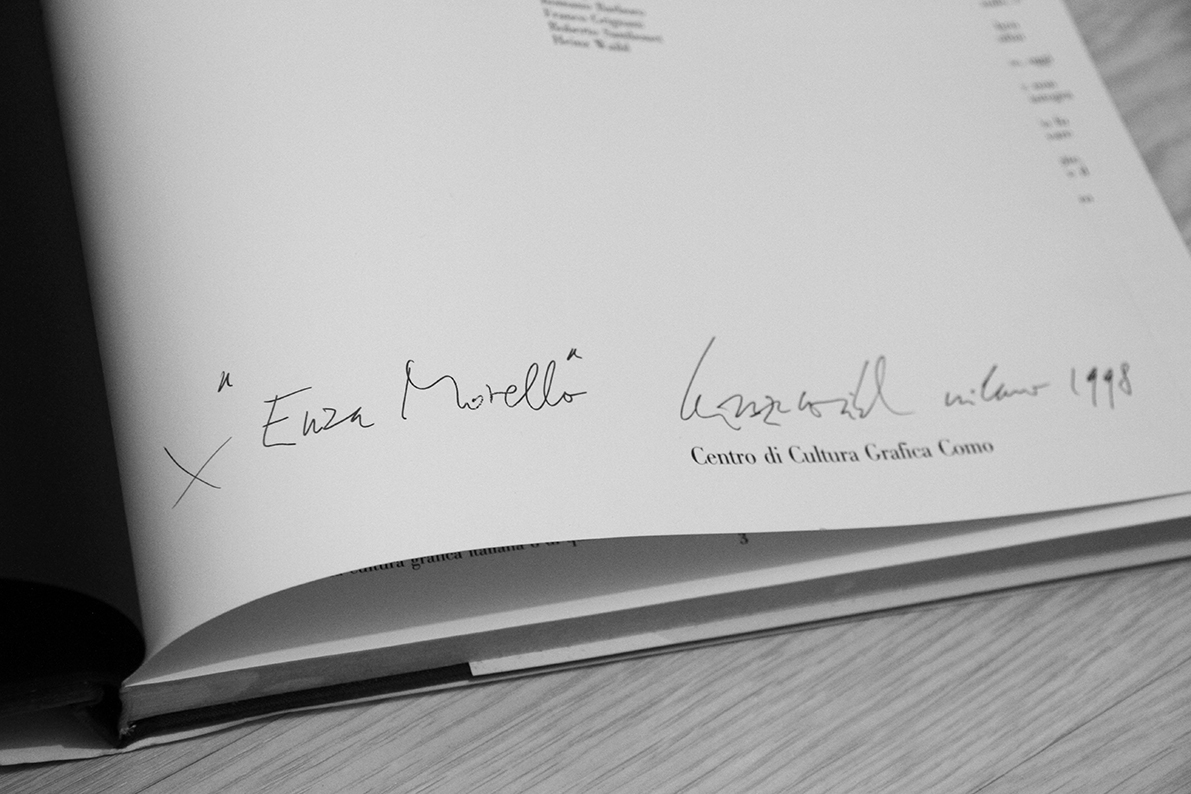 Franco Grignani
Roberto Sambonet
Heinz Waibl
oggi
X "Enza Morello"
heinz waibl milano 1998
Centro di Cultura Grafica Como
cultura grafica italiana o di
3